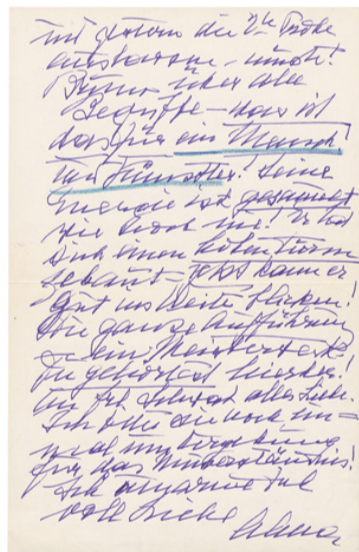 mit gestern die 2te Probe
anhören – musste!
über alle
Begriffe – was ist
das für ein Mensch!
ein Künstler! Seine
Energie ist gespannt
wie noch nie! Er hat
sich einen hohen Turm
gebaut – jetzt kann er
gut ins Weite blicken!
Die ganze Aufführung
– ein Meisterwerk
Du gehörtest hierher!
alles Liebe.
Ich bitte dich noch ein-
mal um Vergebung
für das Missverständnis!
Ich umarme Dich
voll Liebe
Alma